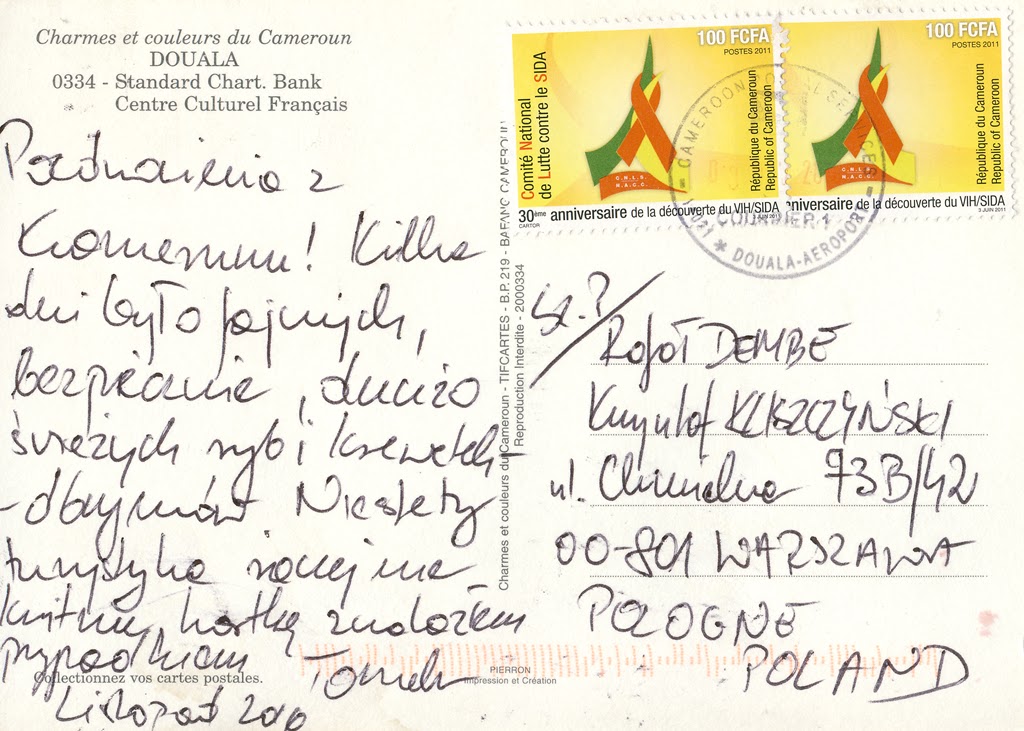 Charmes et couleurs du Cameroun
DOUALA
0334 - Standard Chart. Bank
Centre Culturel Français
Pozdrowienia z
Kamerunu! Kilka
dni było fajnych,
bezpiecznie, dużo
świeżych ryb i krewetek
-olbrzymów. Niestety
turystyka raczej nie
kwitnie, kartkę znalazłem
przypadkiem Tomek
Listopad
Collectionnez vos cartes postales.
Charmes et couleurs du Cameroun - TIFCARTES - B.P. 219 - BAFANG CAMEROUN
Reproduction Interdite - 2000334
PIERRON
Impression et Création
100 FCFA
POSTES 2011
Comité National
de Lutte contre le SIDA
République du Cameroun
Republic of Cameroon
C.N.L.S.
N.A.C.C.
30ème anniversaire de la découverte du VIH/SIDA
CARTOR
3 JUIN 2011
100 FCFA
POSTES 2011
République du Cameroun
Republic of Cameroon
C.N.L.S.
N.A.C.C.
niversaire de la découverte du VIH/SIDA
3 JUIN 2011
CAMEROON
COURRIER 1
* DOUALA-AEROPORT -
Sz.P.
Rafał DEMBE
Krzysztof KLISZCZYŃSKI
ul. Chmielna 73B/42
00-801 WARSZAWA
POLOGNE
POLAND